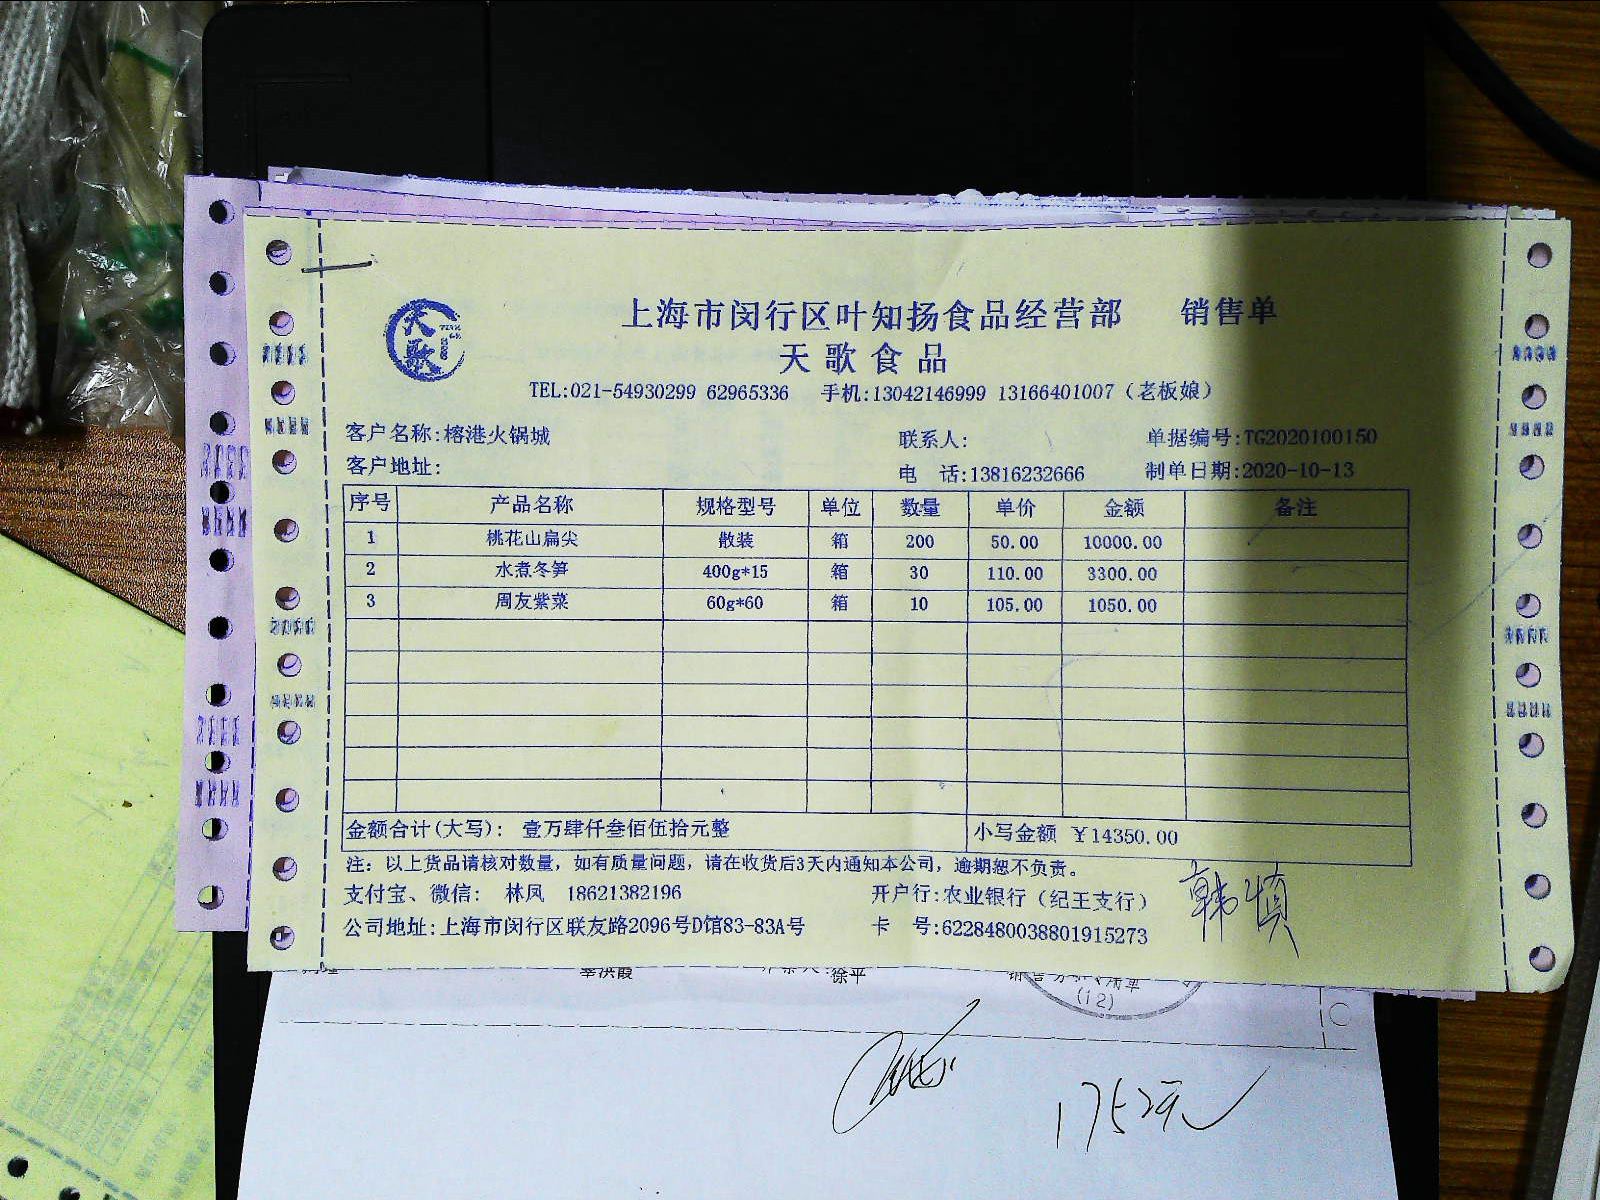 天歌
上海市闵行区叶知扬食品经营部 销售单
天歌食品
TEL:021-54930299 62965336 手机:13042146999 13166401007（老板娘）
客户名称:榕港火锅城 联系人: 单据编号:TG2020100150
客户地址: 电 话:13816232666 制单日期:2020-10-13
序号 产品名称 规格型号 单位 数量 单价 金额 备注
1 桃花山扁尖 散装 箱 200 50.00 10000.00
2 水煮冬笋 400g*15 箱 30 110.00 3300.00
3 周友紫菜 60g*60 箱 10 105.00 1050.00
金额合计(大写): 壹万肆仟叁佰伍拾元整 小写金额 ￥14350.00
注: 以上货品请核对数量, 如有质量问题, 请在收货后3天内通知本公司, 逾期恕不负责。
支付宝、微信: 林凤 18621382196 开户行:农业银行（纪王支行）
公司地址:上海市闵行区联友路2096号D馆83-83A号 卡 号:6228480038801915273
徐平
(12)
1752元